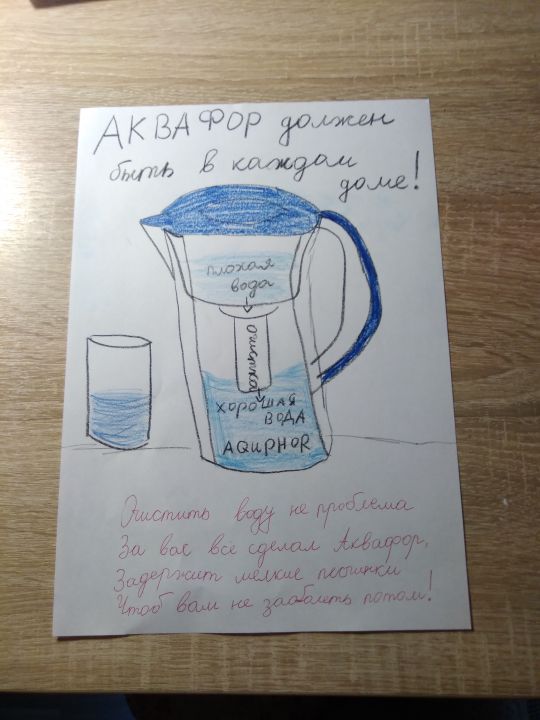 АКВАФОР должен
быть в каждом
доме!
плохая
вода
очистка
ХОРОШАЯ
ВОДА
AQUPHOR
Очистить воду не проблема
За вас всё сделал Аквафор,
Задержит мелкие песчинки
Чтоб вам не заболеть потом!